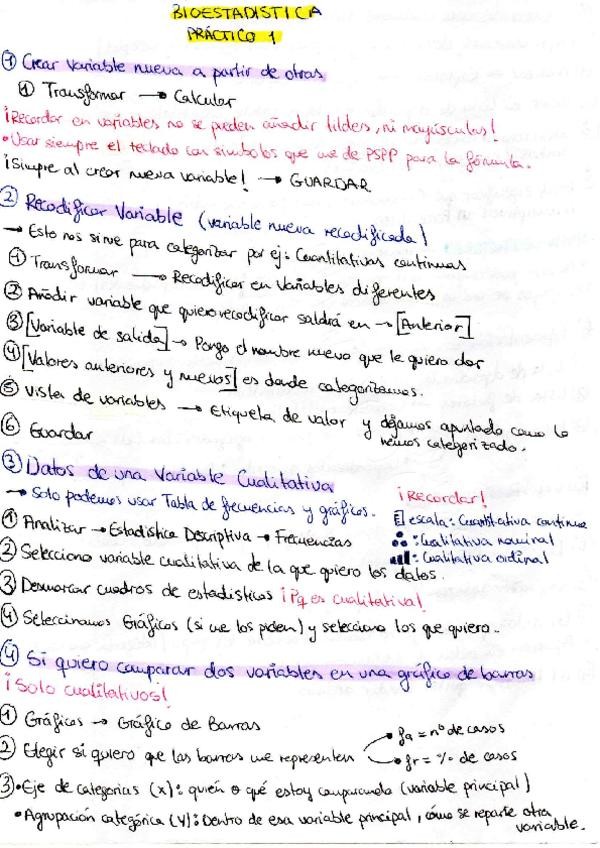 BIOESTADISTICA
PRÁCTICO 1
① Crear variable nueva a partir de otras
① Transformar → Calcular
¡Recordar en variables no se pueden añadir tildes, ni mayúsculas!
• Usar siempre el teclado con simbolos que me da PSPP para la fórmula.
¡Siempre al crear nueva variable! → GUARDAR
② Recodificar Variable (variable nueva recodificada)
→ Esto nos sirve para categorizar por ej: Cuantitativas continuas
① Transformar → Recodificar en Variables diferentes
② Añadir variable que quiero recodificar saldrá en → [Anterior]
③ [Variable de salida] → Pongo el nombre nuevo que le quiero dar
④ [Valores anteriores y nuevos] es donde categorizamos.
⑤ Vista de variables → Etiqueta de valor y dejamos apuntado como lo
hemos categorizado.
⑥ Guardar
③ Datos de una Variable Cualitativa
→ Solo podemos usar Tabla de frecuencias y gráficos.
¡Recordar!
escala: Cuantitativa continua
: Cualitativa nominal
: Cualitativa ordinal
① Analizar → Estadística Descriptiva → Frecuencias
② Selecciono variable cualitativa de la que quiero los datos.
③ Desmarcar cuadros de estadísticos ¡Pq es cualitativa!
④ Seleccionamos Gráficos (si me los piden) y selecciono los que quiero.
④ Si quiero comparar dos variables en una gráfico de barras
¡Solo cualitativos!
① Gráficos → Gráfico de Barras
② Elegir si quiero que las barras me representen
fa = nº de casos
fr = % de casos
③ • Eje de categorias (x): quién o qué estoy comparando (variable principal)
• Agrupación categórica (Y): Dentro de esa variable principal, cómo se reparte otra
variable.